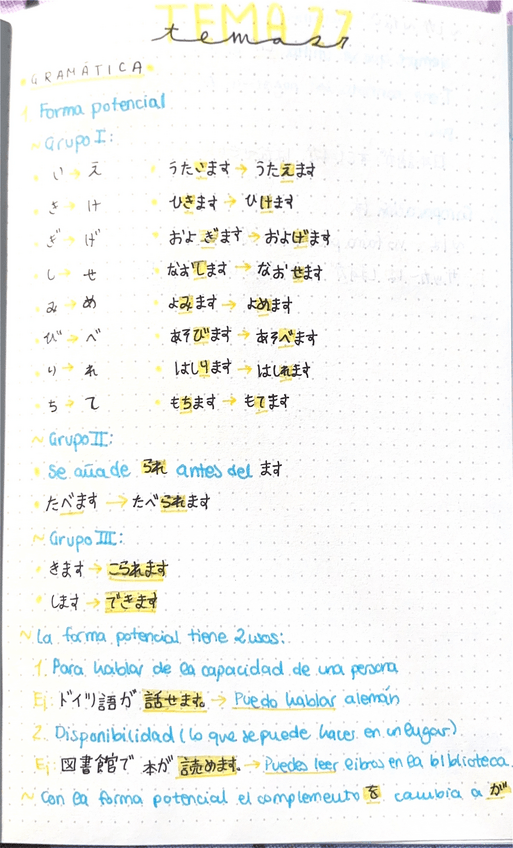 TEMA 27
temas
GRAMÁTICA
1. Forma potencial
~ Grupo I:
• い → え • うたいます → うたえます
• き → け • ひきます → ひけます
• ぎ → げ • およぎます → およげます
• し → せ • なおします → なおせます
• み → め • よみます → よめます
• び → べ • あそびます → あそべます
• り → れ • はしります → はしれます
• ち → て • もちます → もてます
~ Grupo II:
• Se añade られ antes del ます
• たべます → たべられます
~ Grupo III:
• きます → こられます
• します → できます
~ La forma potencial tiene 2 usos:
1. Para hablar de la capacidad de una persona
Ej: ドイツ語が 話せます。 → Puedo hablar alemán
2. Disponibilidad (lo que se puede hacer en un lugar)
Ej: 図書館で 本が 読めます。 → Puedes leer libros en la biblioteca.
~ Con la forma potencial el complemento を cambia a が